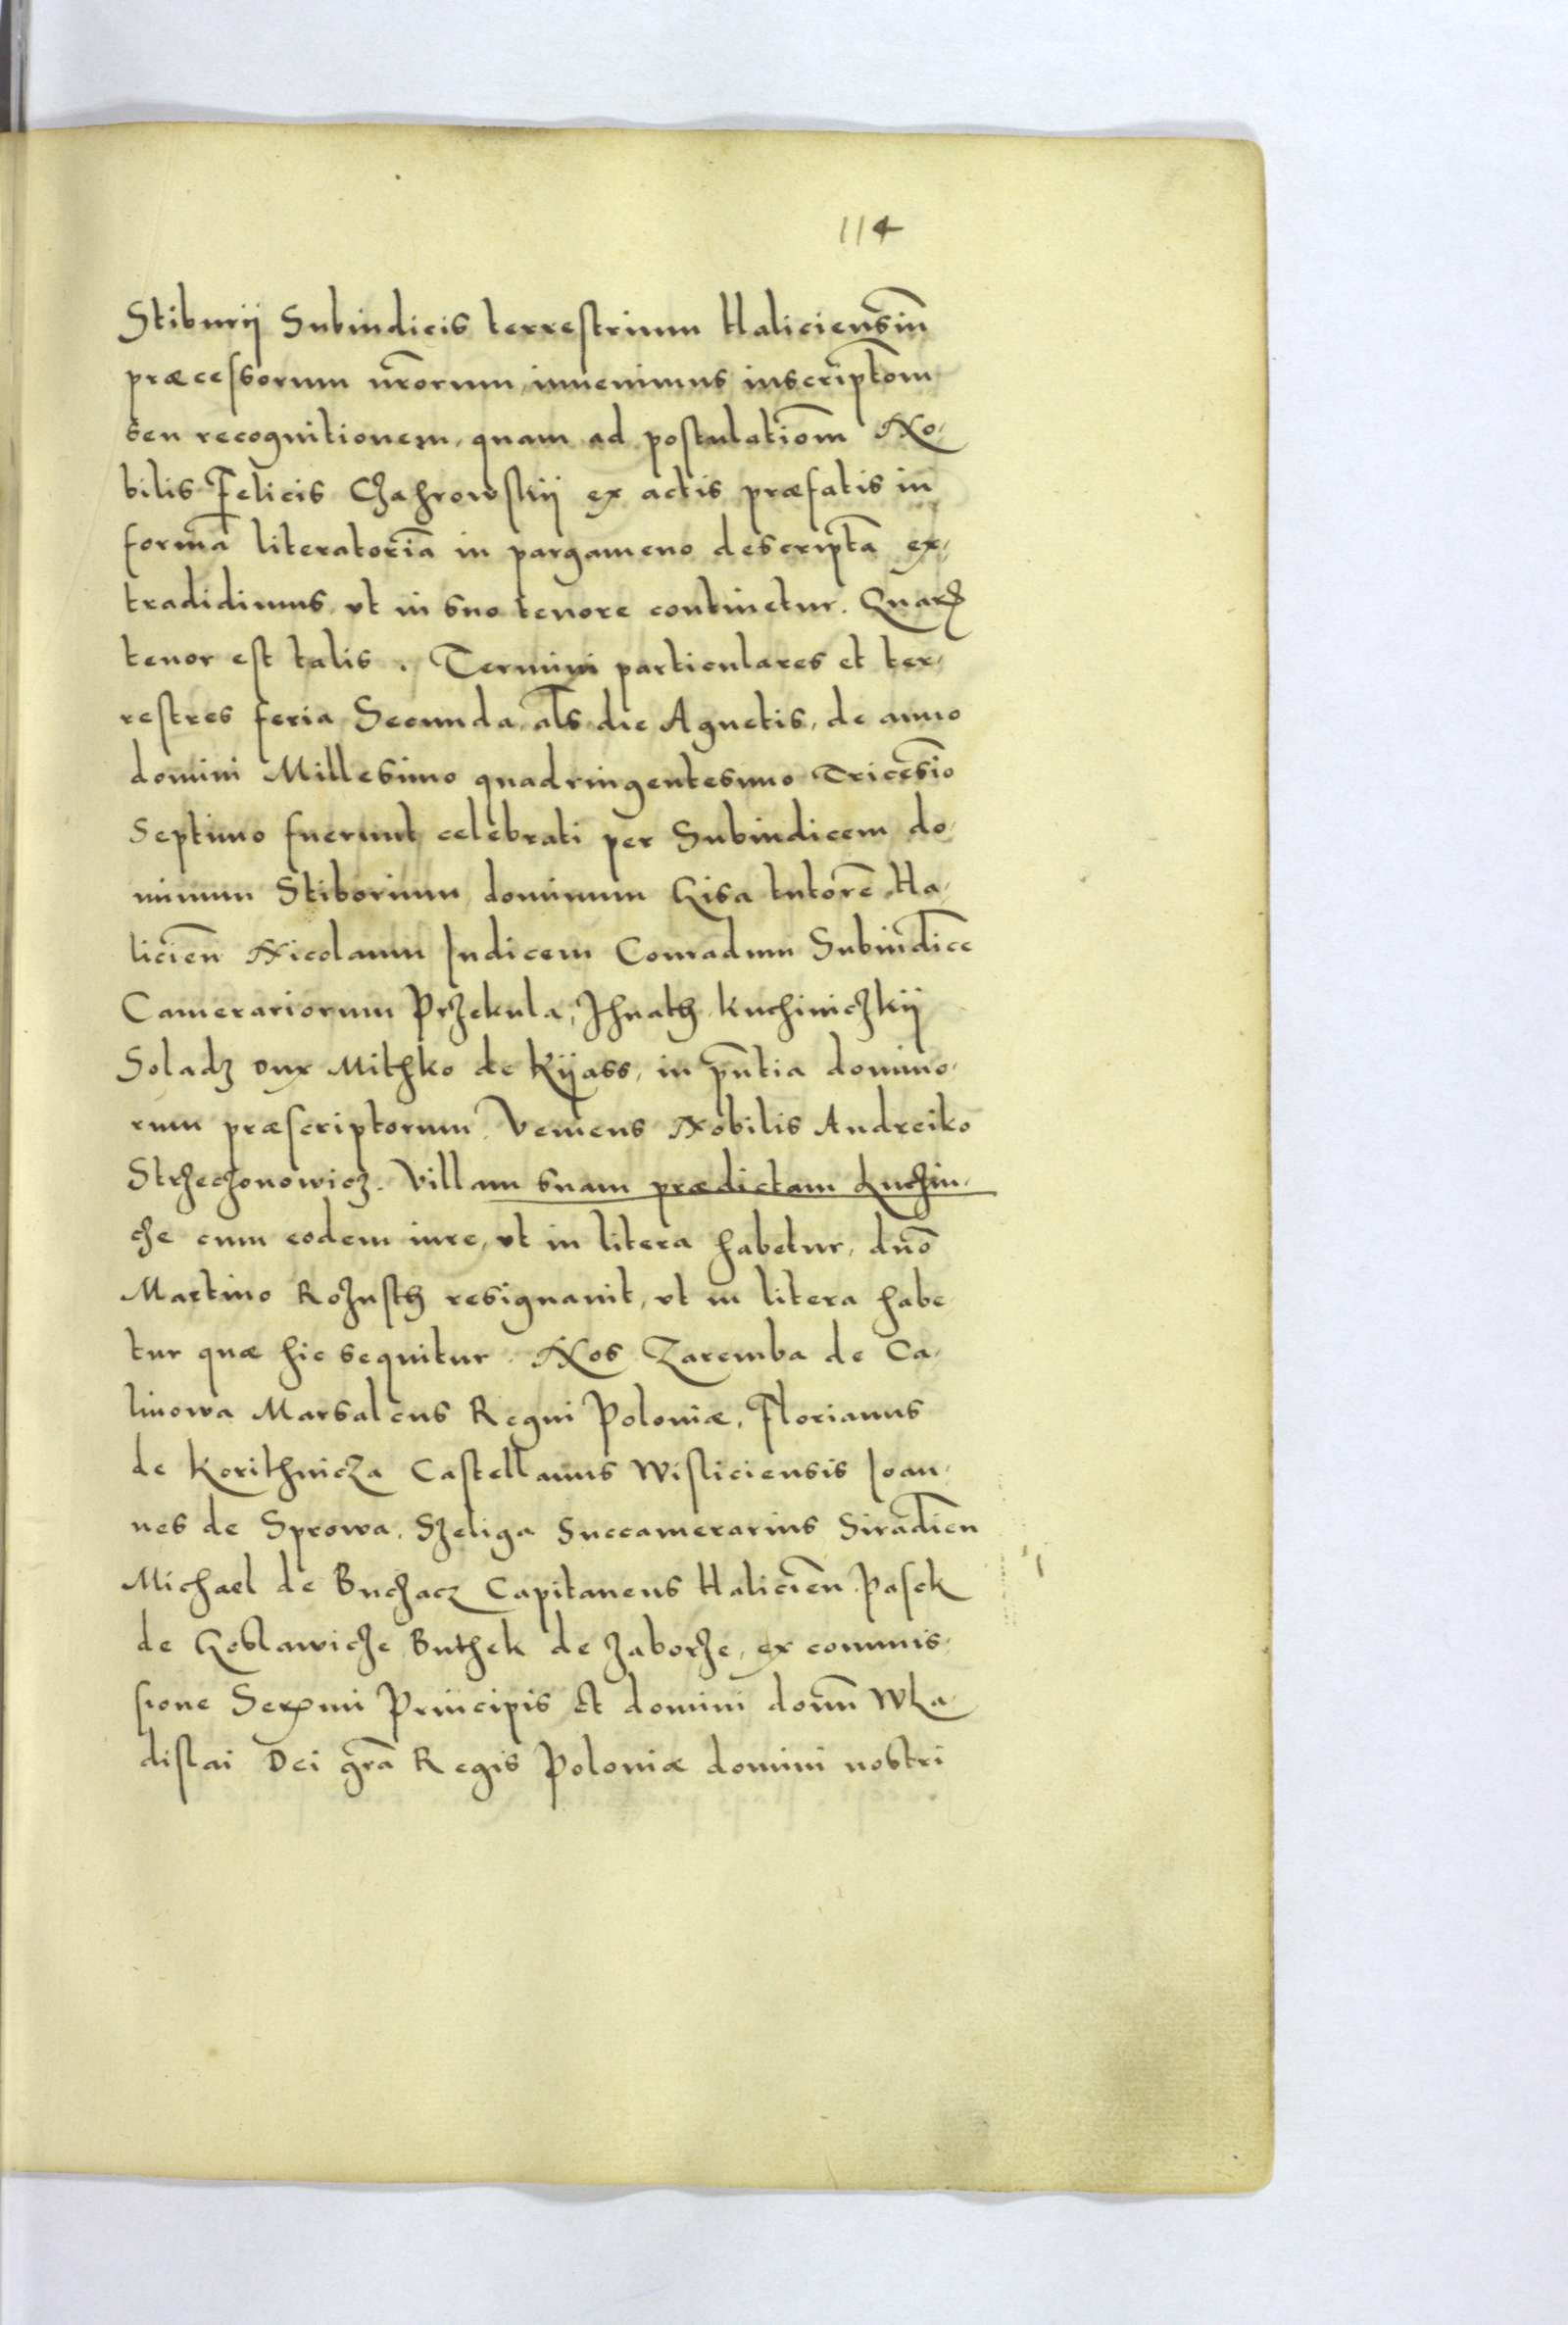 114
Stiburij Subiudicis terrestrium Haliciensiu̅
præcessorum nr̅orum, inuenimus inscriptio̅m
seu recognitionem, quam ad postulatio̅m No-
bilis Felicis Chahrowskij ex actis præfatis in
forma̅ literatoria̅ in pargameno descripta̅ ex-
tradidimus, vt in suo tenore continetur. Quar&
tenor est talis. Termini particulares et ter-
restres feria Secunda, al̅s die Agnetis, de anno
domini Millesimo quadringentesimo Tricesi̅o
Septimo fuerunt celebrati per Subiudicem do-
minum Stiborium dominum Gisa tutore̅ Ha-
licien̅ Nicolaum Iudicem Conradum Subiudice̅
Camerariorum Przekula, Ihnath Kuchiniczkij
Soladz dux Mithko de Kijass, in pn̅tia domino-
rum præscriptorum. Veniens Nobilis Andreiko
Strzeczonowicz. Villam suam prædictam Luchin-
che cum eodem iure, vt in litera habetur, dn̅o
Martino Rozusth resignauit, vt in litera habe
tur quæ hic sequitur. Nos Zaremba de Ca-
linowa Marsalcus Regni Poloniæ, Florianus
de Korithnicza Castellanus Wisliciensis Ioan-
nes de Sprowa, Szeliga Succamerarius Siradien̅
Michael de Buchacz Capitaneus Halicien̅ Pasek
de Goslawicze Buthek de Zaborze, ex commis-
sione Ser̅mi Principis et domini domn̅ Wla-
dislai Dei gra̅ Regis Poloniæ domini nostri